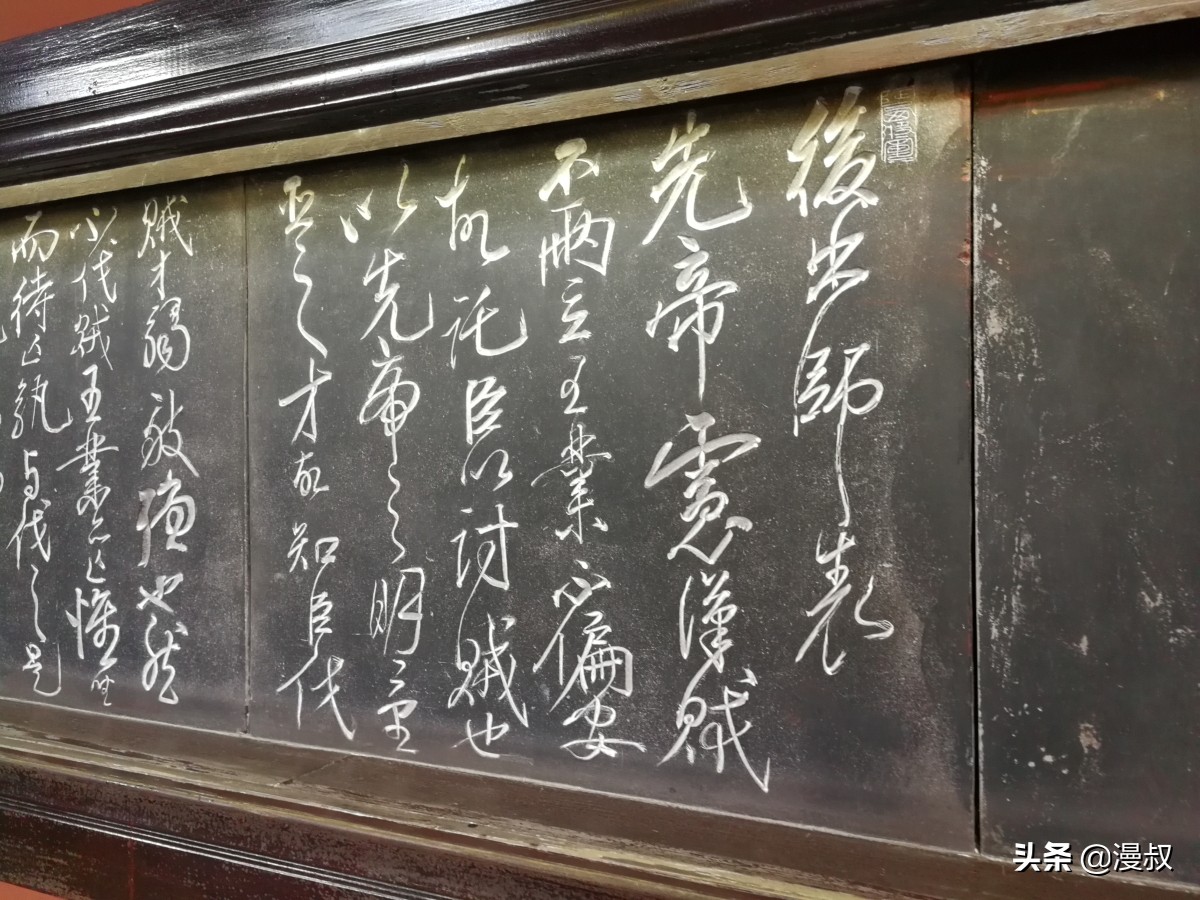 後出師表
先帝慮漢賊
不兩立王業不偏安
故託臣以討賊也
以先帝之明量
臣之才故知臣伐
賊才弱敵強也然
不伐賊王業亦亡惟坐
而待亡孰与伐之是
头条 @漫叔